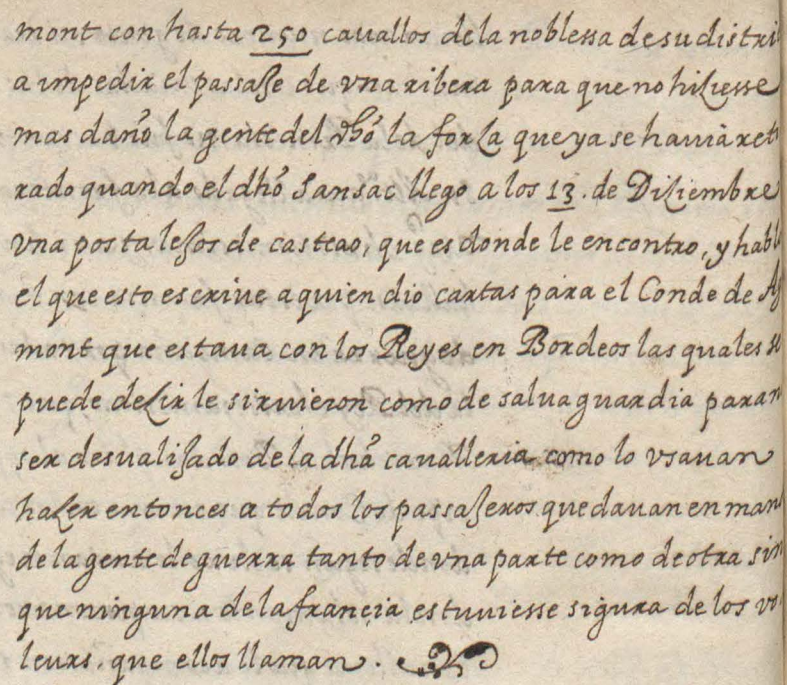 mont con hasta 250 cauallos de la noblessa de su distri
a impedir el passaje de vna ribera para que no hiziesse
mas daño la gente del dhõ la forza que ya se hauia ret
rado quando el dhõ Sansac llego a los 13. de Diziembre
vna posta lejos de casteao, que es donde le encontro, y habl
el que esto escriue a quien dio cartas para el Conde de Ag
mont que estaua con los Reyes en Bordeos las quales se
puede dezir le siruieron como de saluaguardia para n
ser desualijado de la dhã caualleria como lo vsauan
hazer entonces a todos los passajeros que dauan en man
de la gente de guerra tanto de vna parte como de otra sin
que ninguna de la françia estuuiesse sigura de los vo
leurs, que ellos llaman.